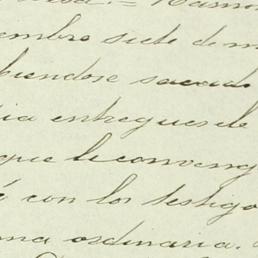 embre siete de m
biendose sacado
ia entreguesele
que le conveng
con los testigo
ma ordinaria.